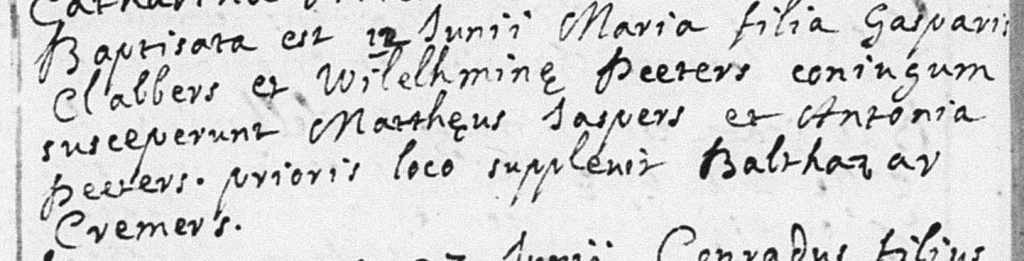 Baptisata est 12 Junii Maria filia Gasparis
Clabbers et Wilelhminę Peeters coniugum
susceperunt Matthęus Jaspers et Antonia
Peeters. prioris loco supplevit Balthazar
Cremers.
Junii Conradus filius